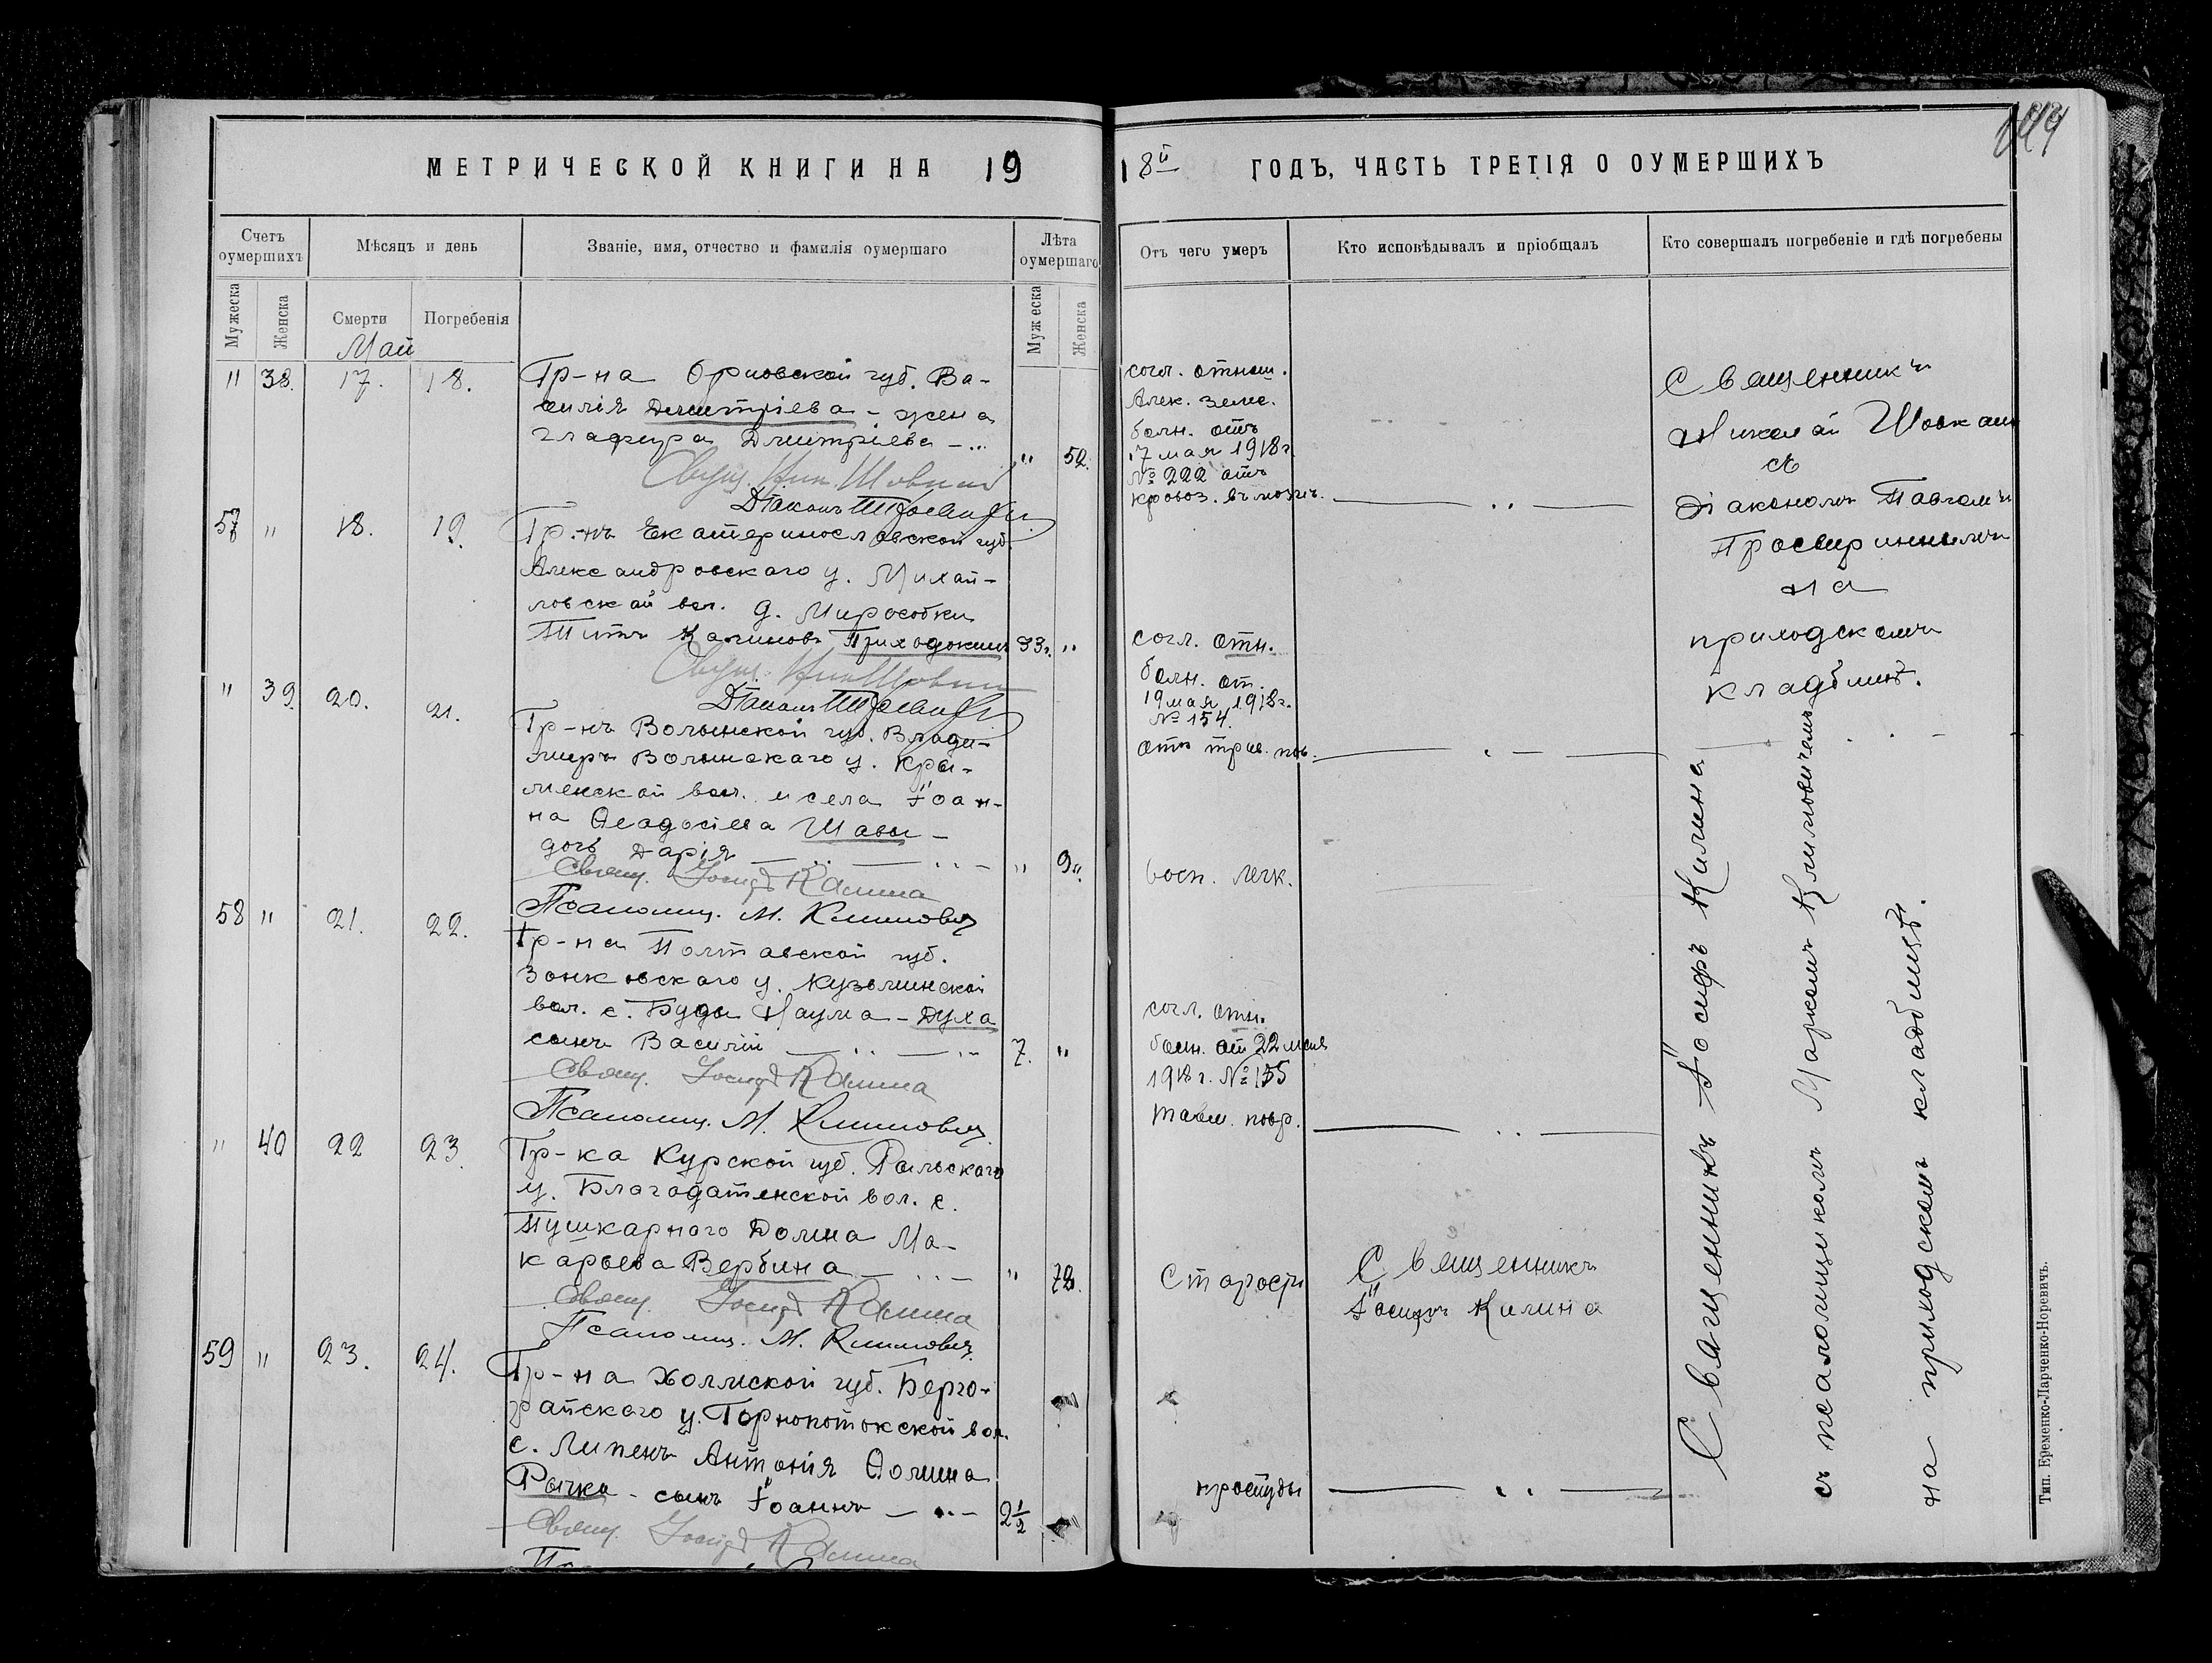 МЕТРИЧЕСКОЙ КНИГИ НА 19
18й ГОДЪ, ЧАСТЬ ТРЕТІЯ О ОУМЕРШИХЪ
Счетъ оумершихъ
Мѣсяцъ и день
Званіе, имя, отчество и фамилія оумершаго
Лѣта оумершаго
Мужеска
Женска
Смерти
Погребенія
Мужеска
Женска
Май
" 38. 17. 18.
Гр-на Орловской губ. Ва-
силія Димитріева - жена
Глафира Дмитріева - ...
" 52.
Свящ. Ник. Шовкан
Діаконъ
57 " 18. 19.
Гр-нъ Екатеринославской губ.
Александровскаго у. Михай-
ловской вол. д.
Титъ
33. "
Свящ. Ник. Шовкан
Діаконъ
" 39. 20. 21.
Гр-нъ Волынской губ. Влади-
миръ Волынскаго у.
вол. и села Іоан-
на Ѳеодосіева
дочь Дарія
" 9.
Свящ. Іосифъ Калина
Псаломщ. М. Климович
58 " 21. 22.
Гр-на Полтавской губ.
Зеньковскаго у. Кузьминской
вол. с. Буды Наума - Духа
сынъ Василій
7. "
Свящ. Іосифъ Калина
Псаломщ. М. Климович
" 40 22 23.
Гр-ка Курской губ. Рыльскаго
у. Благодатенской вол. с.
Пушкарного Домна Ма-
карьева Вербина
" 78.
Свящ. Іосифъ Калина
Псаломщ. М. Климович
59 " 23. 24.
Гр-на Холмской губ.
у. Горнопотокской вол.
с. Липенъ Антонія Ѳомина
Рычка - сынъ Іоаннъ
2 1/2
Свящ. Іосифъ Калина
Отъ чего умеръ
Кто исповѣдывалъ и пріобщалъ
Кто совершалъ погребеніе и гдѣ погребены
согл. отнош.
Алек. земс.
болн. отъ
17 мая 1918 г.
№ 222 отъ
кровоз. въ мозгъ.
согл. отн.
болн. от.
19 мая 1918 г.
№ 154.
восп. легк.
согл. отн.
болн. от 22 мая
1918 г. № 155
Старости
Священникъ
Іосифъ Калина
простуды
Священникъ
Николай Шовкан
съ
Діакономъ Павломъ
на
приходскомъ
кладбищѣ.
Священникъ Іосифъ Калина
съ псаломщикомъ Маркомъ Климовичемъ
на приходскомъ кладбищѣ.
Тип. Еременко-Ларченко-Норевичъ.